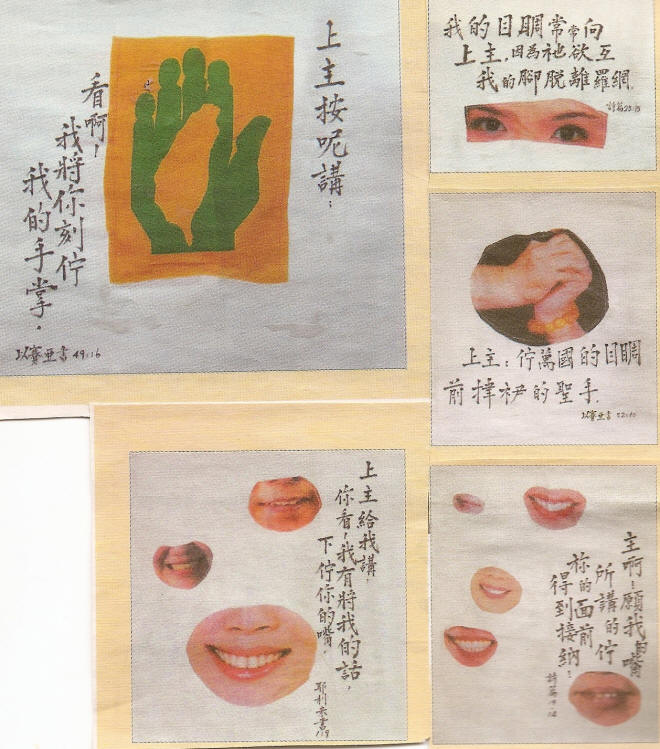 上主按呢講：
看啊！
我將你刻佇
我的手掌.
以賽亞書 49:16
我的目睭常常向
上主,因為祂欲互
我的腳脫離羅網.
詩篇25:15
上主：佇萬國的目睭
前揮的聖手.
以賽亞書 52:10
上主給我講,
你看！我有將我的話,
下佇你的嘴.
耶利米書1:9
主啊！願我嘴
所講的佇
祢的面前
得到接納！
詩篇19:14